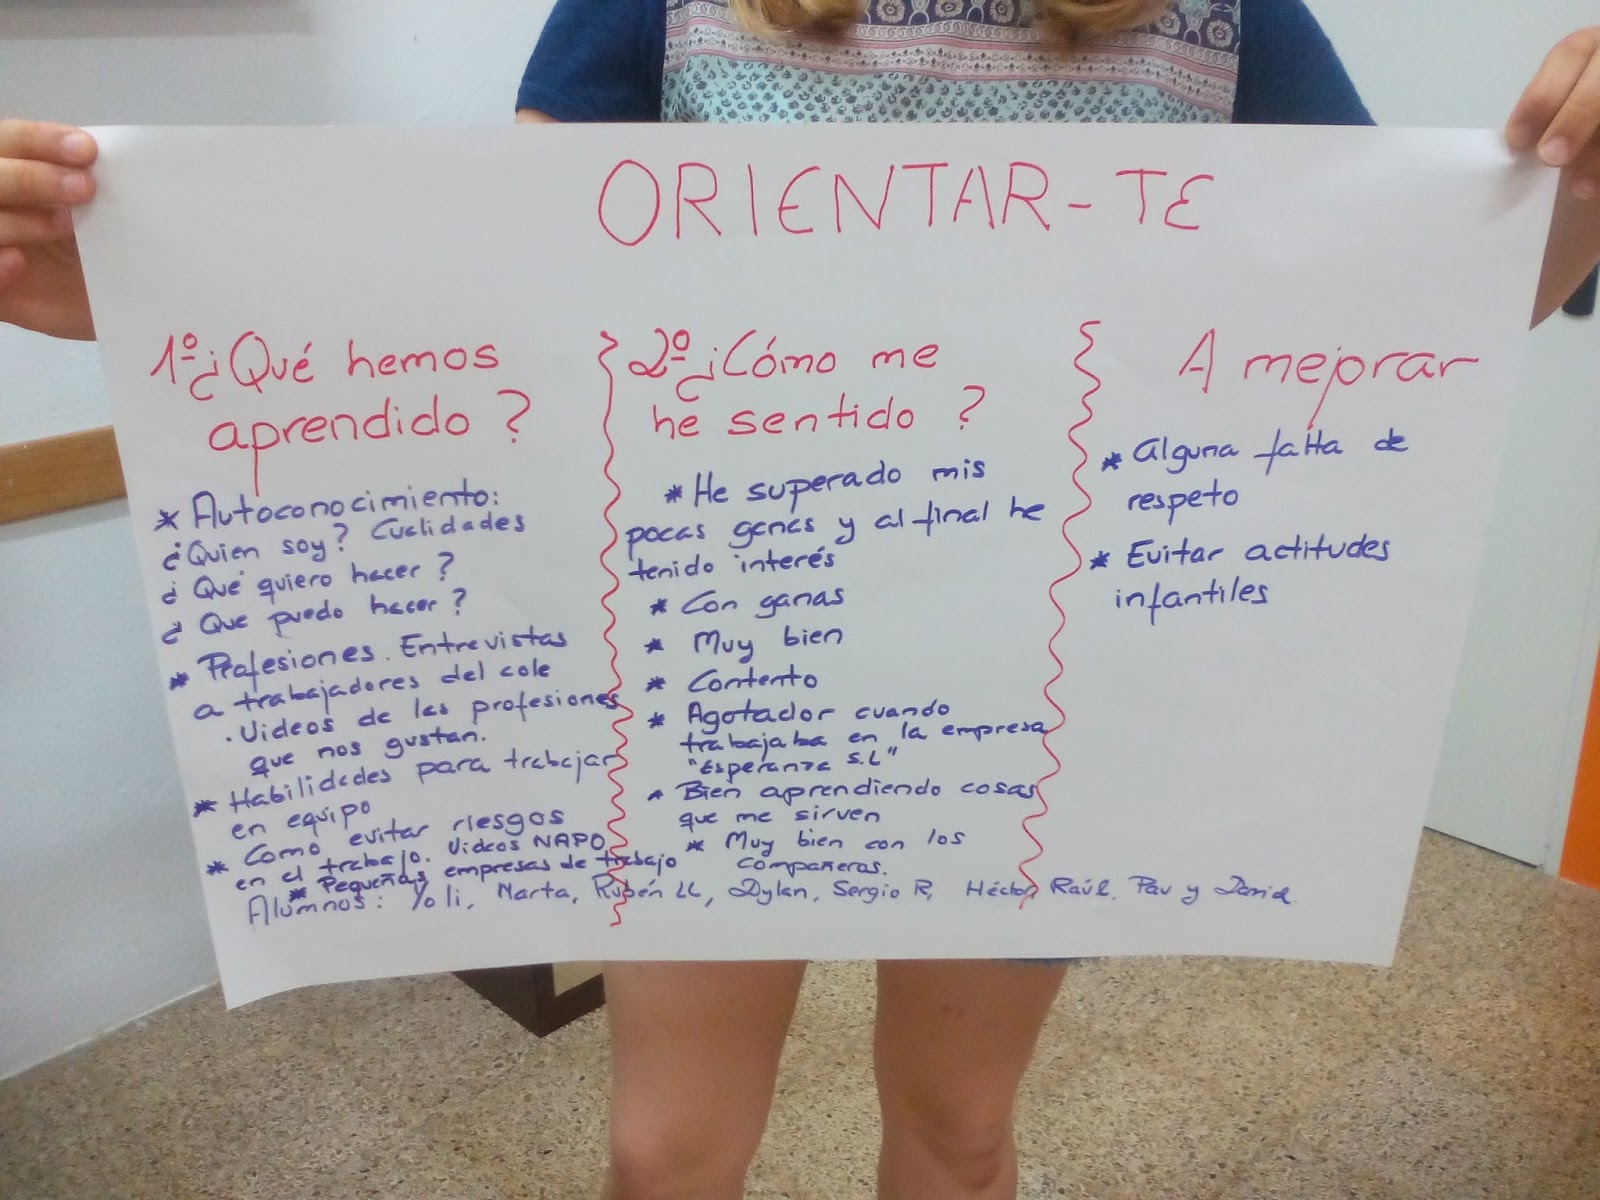 ORIENTAR-TE
1º ¿Qué hemos
aprendido?
* Autoconocimiento:
¿Quien soy? Cualidades
¿Qué quiero hacer?
¿Que puedo hacer?
* Profesiones. Entrevistas
a trabajadores del cole
. Videos de las profesiones
que nos gustan.
* Habilidades para trabajar
en equipo
* Como evitar riesgos
en el trabajo. Videos NAPO
* Pequeñas empresas de trabajo
2º ¿Cómo me
he sentido?
* He superado mis
pocas ganas y al final he
tenido interés
* Con ganas
* Muy bien
* Contento
* Agotador cuando
trabajaba en la empresa
"Esperanza S.L"
* Bien aprendiendo cosas
que me sirven
* Muy bien con los
compañeros.
A mejorar
* Alguna falta de
respeto
* Evitar actitudes
infantiles
Alumnos: Yoli, Marta, Rubén LL, Dylan, Sergio R, Héctor, Raúl, Pau y David